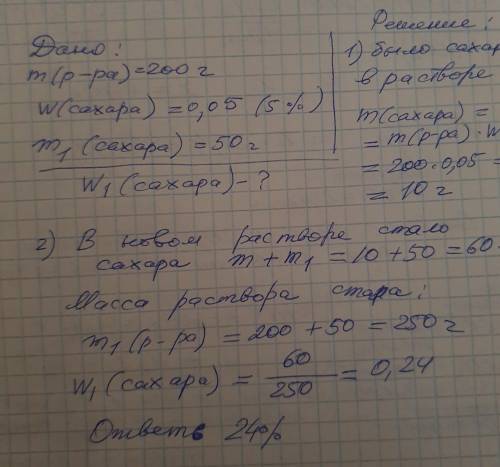 Дано:
m(р-ра)=200 г
w(сахара) = 0,05 (5%)
m₁ (сахара) = 50 г
w₁ (сахара) - ?
Решение:
1) было сахар
в растворе
m(сахара) =
= m(р-ра) · w
= 200 · 0,05 =
= 10 г
2) В новом растворе стало
сахара m + m₁ = 10 + 50 = 60
Масса раствора стара:
m₁ (р-ра) = 200 + 50 = 250 г
w₁ (сахара) = 60/250 = 0,24
Ответ 24%